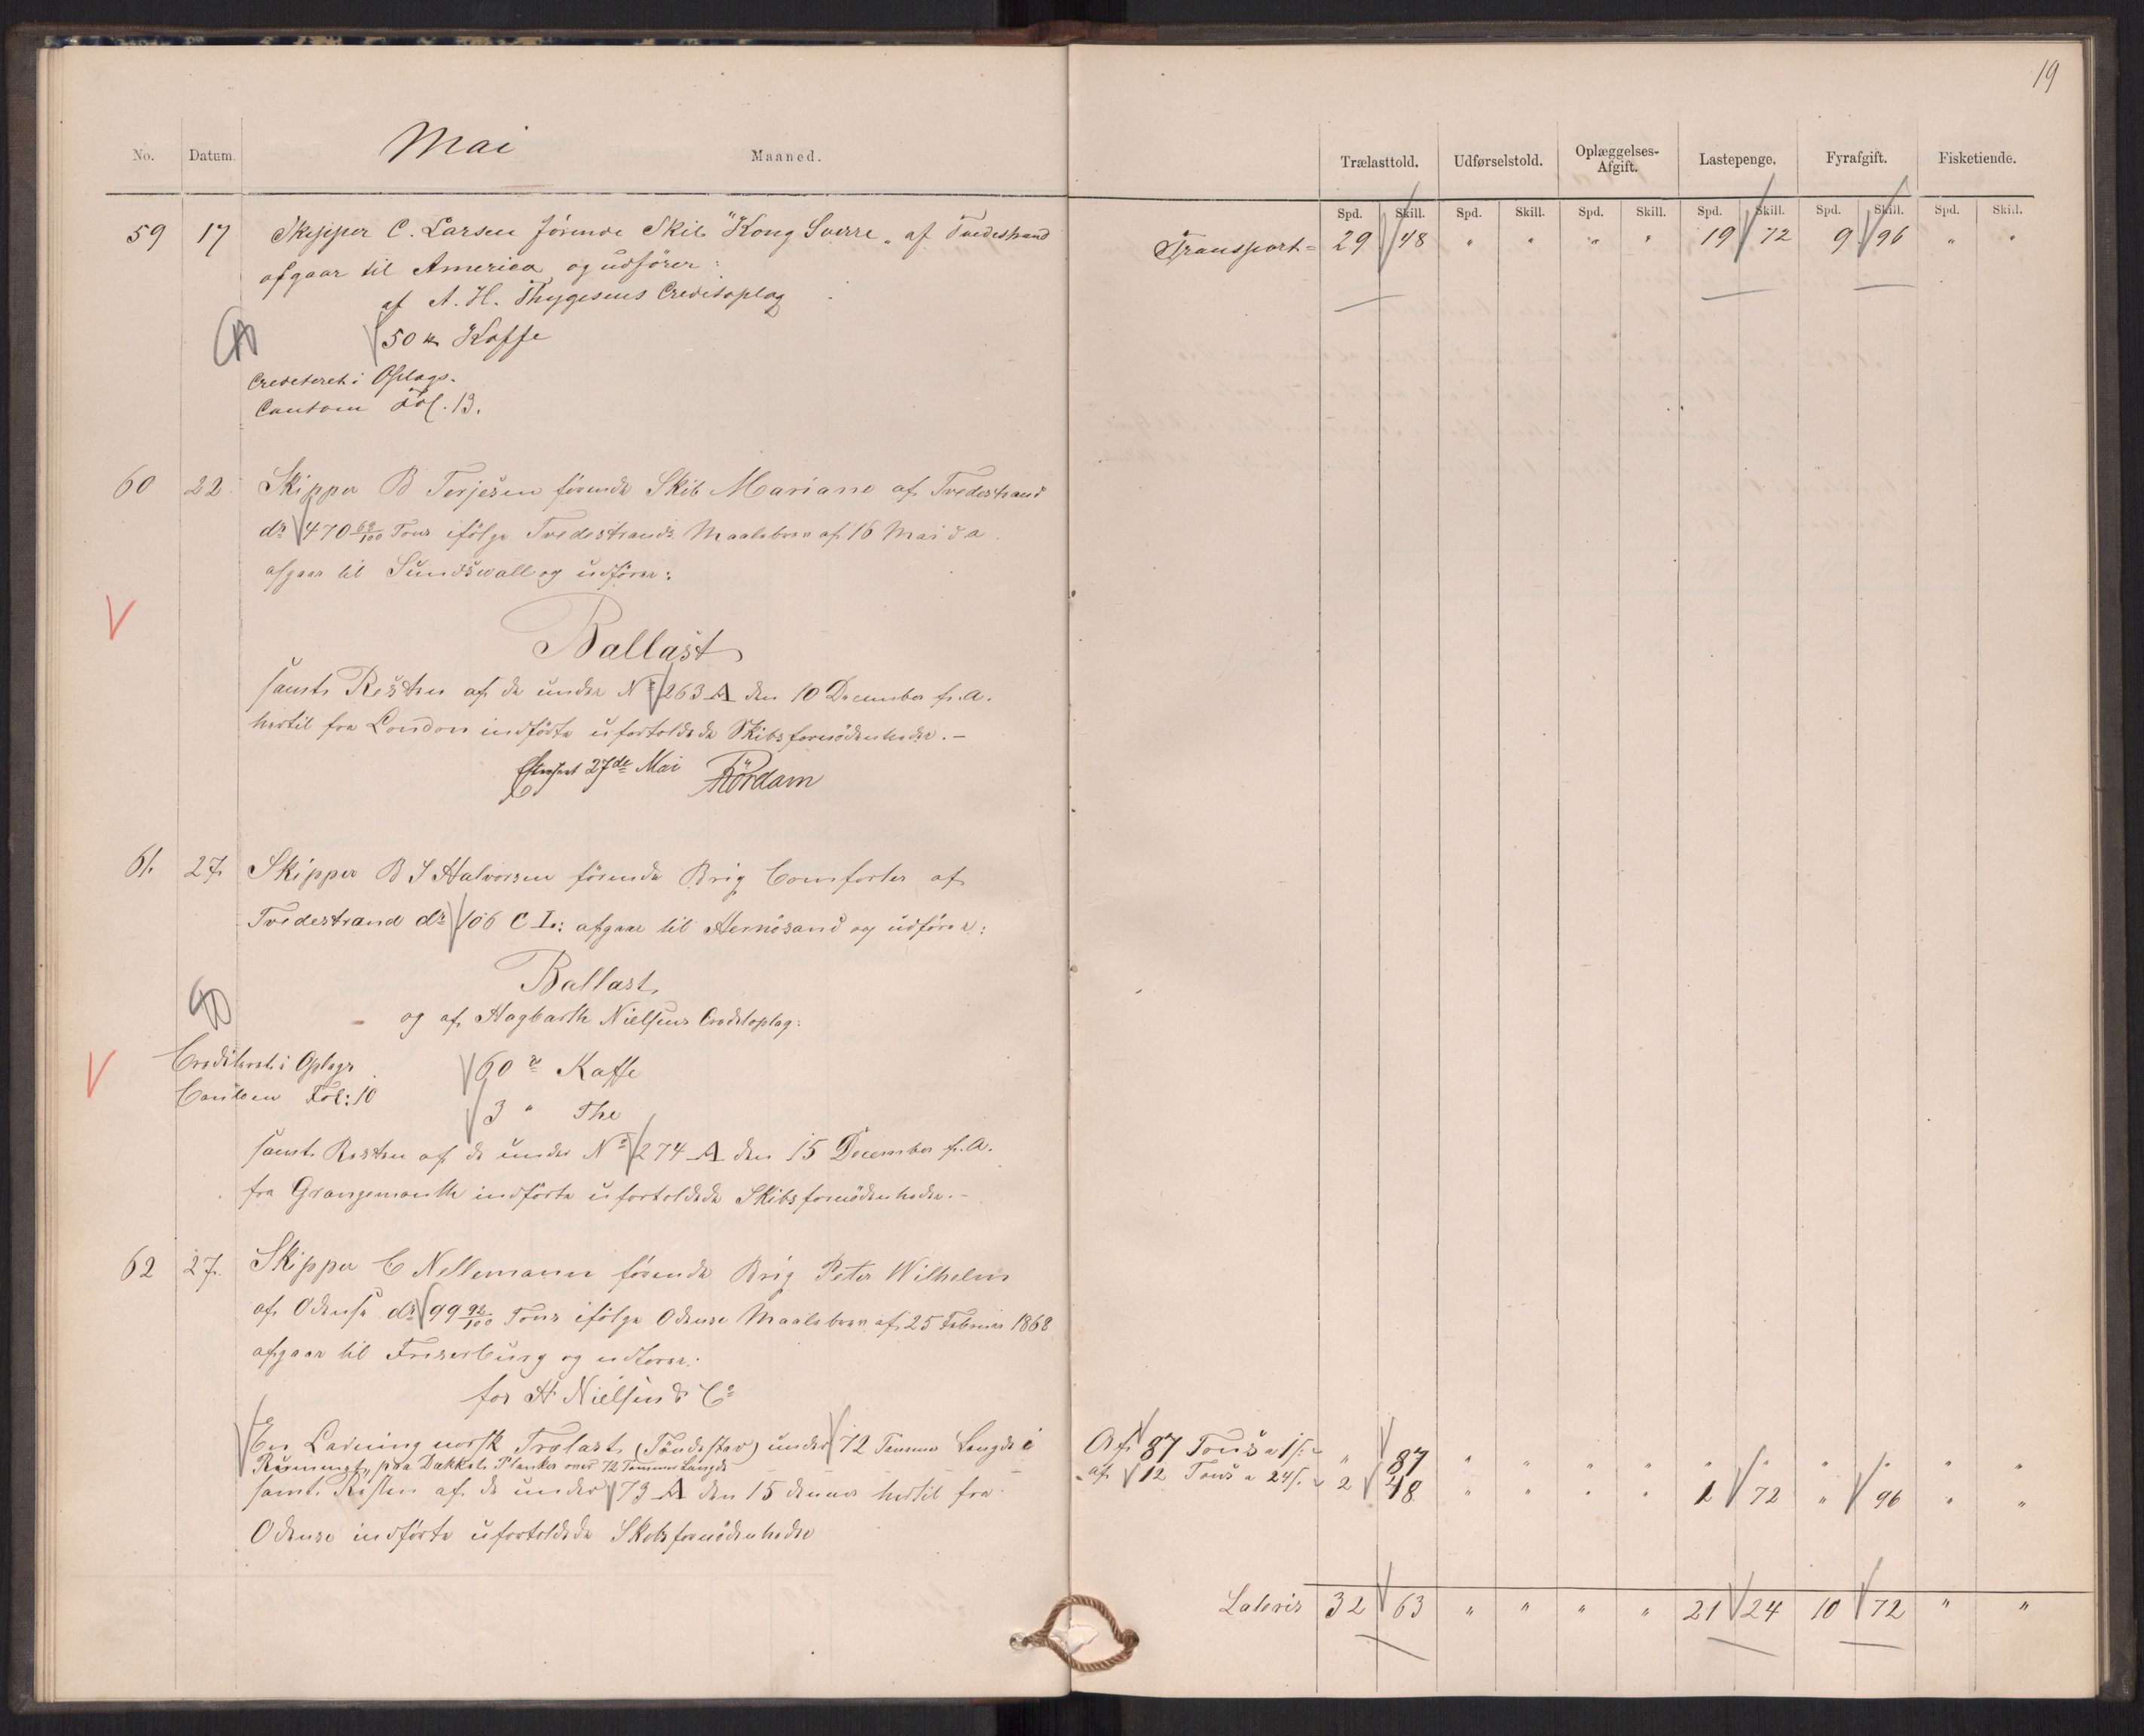 19
Mai
No. Datum. Maaned.
Trælasttold. Udførselstold. Oplæggelses-Afgift. Lastepenge. Fyrafgift. Fisketiende.
Spd. Skill. Spd. Skill. Spd. Skill. Spd. Skill. Spd. Skill. Spd. Skill.
Transport = 29 48 " " " " 19 72 9 96 " "
59 17 Skipper C. Larsen förende Skib "Kong Sverre" af Tvedestrand
afgaar til America og udförer:
af A. H. Thygesens Creditoplag
50 Kaffe
Crediteret i Oplags.
Contoen Fol. 13.
60 22 Skipper B Terjesen förende Skib Mariane af Tvedestrand
dr 470 68/100 Tons ifölge Tvedestrands Maalebrev af 16 Mai d a
afgaar til Sundswall og udförer:
Ballast
samt Resten af de under No 263 A den 10 December f. A.
hertil fra London indförte ufortoldede Skibsfornödenheder. -
27de Mai Rördam
61. 27. Skipper B J Halvorsen förende Brig Comforter af
Tvedestrand dr 106 C L: afgaar til Hernösand og udförer:
Ballast
og af Hagbarth Nielsens Creditoplag:
Crediteret i Oplags
60 Kaffe
Contoen Fol: 10
3 " The
samt Resten af de under No 274 A den 15 December f. A.
fra Grangemouth indförte ufortoldede Skibsfornödenheder. -
62 27. Skipper C Nellemann förende Brig Peter Wilhelm
af Odense dr 99 92/100 Tons ifölge Odense Maalebrev af 25 Februar 1868
afgaar til Friserburg og udförer:
for H Nielsen & Co
En Ladning norsk Trælast (Töndestav) under 72 Tommer Længde i
Rummet, paa Dækket Planker over 72 Tommer Længde
samt Resten af de under 73 A den 15 dennes hertil fra
Odense indförte ufortoldede Skibsfornödenheder
Af 87 Tons a 1 s. " 87 " " " " " " " " " "
af 12 Tons a 24 s. 2 48 " " " " 1 72 " 96 " "
Lateris 32 63 " " " " 21 24 10 72 " "